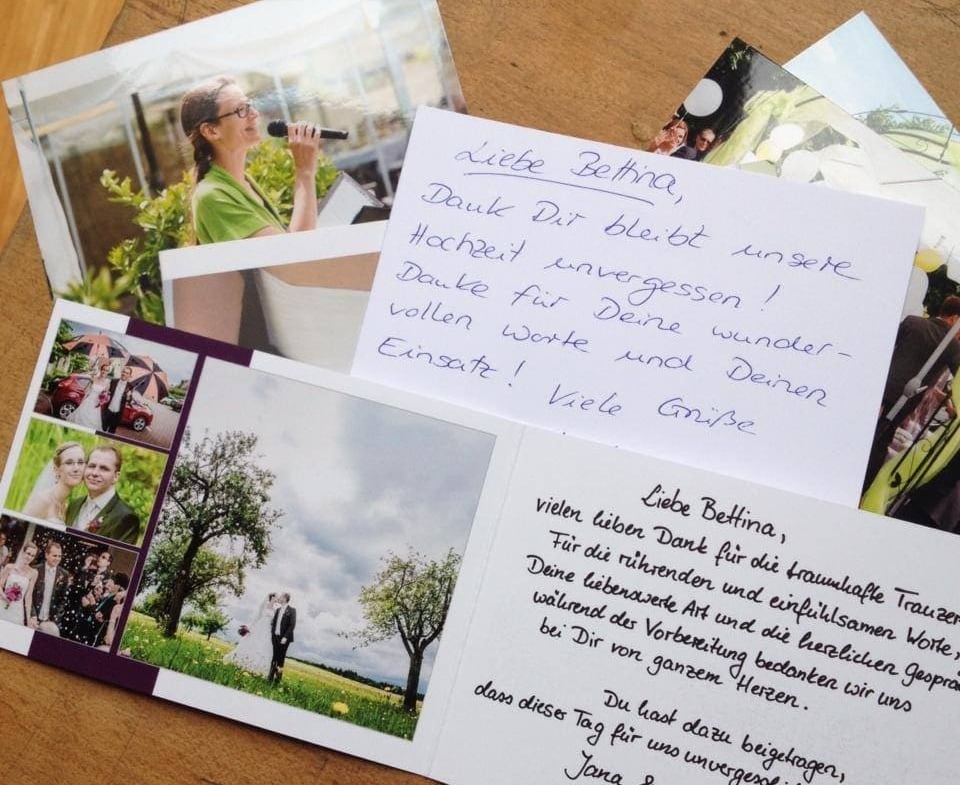 Liebe Bettina,
Dank Dir bleibt unsere
Hochzeit unvergessen!
Danke für Deine wunder-
vollen Worte und Deinen
Einsatz! Viele Grüße
Liebe Bettina,
vielen lieben Dank für die traumhafte
Für die rührenden und einfühlsamen Worte,
Deine liebenswerte Art und die herzlichen
während der Vorbereitung bedanken wir uns
bei Dir von ganzem Herzen.
Du hast dazu beigetragen,
dass dieser Tag für uns
Jana &